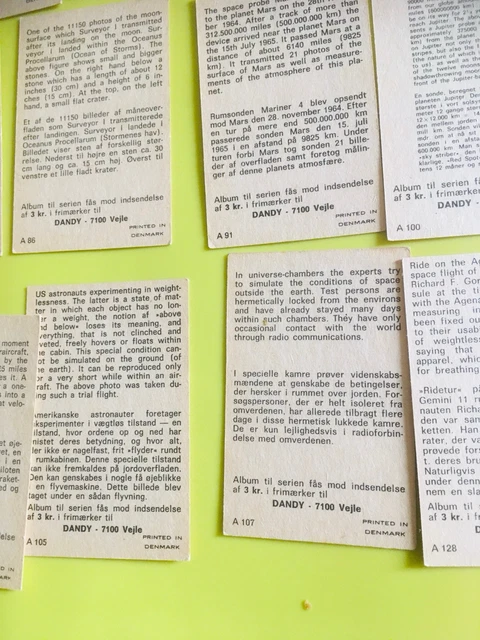 One of the 11150 photos of the moon-
surface which Surveyor I transmitted
after its landing on the moon. Sur-
veyor I landed within the Oceanus
Procellarum (Ocean of Storms). The
above figure shows small and bigger
stones. On the right hand below a
stone which has a length of about 12
inches (30 cm) and a height of 6 in-
ches (15 cm). At the top, on the left
hand, a small flat crater.
Et af de 11150 billeder af måneover-
fladen som Surveyor I transmitterede
efter landingen. Surveyor I landede i
Oceanus Procellarum (Stormenes hav).
Billedet viser sten af forskellig stør-
relse. Nederst til højre en sten ca. 30
cm lang og ca. 15 cm høj. Øverst til
venstre et lille fladt krater.
Album til serien fås mod indsendelse
af 3 kr. i frimærker til
DANDY - 7100 Vejle
PRINTED IN
DENMARK
A 86
The space probe
to the planet Mars on the 28th
ber 1964. After a track of more than
312.500.000 miles (500.000.000 km) the
device arrived near the planet Mars on
the 15th July 1965. It passed Mars at a
distance of about 6140 miles (9825
km). It transmitted 21 photos of the
surface of Mars as well as measure-
ments of the atmosphere of this pla-
net.
Rumsonden Mariner 4 blev opsendt
mod Mars den 28. november 1964. Efter
en tur på mere end 500.000.000 km
passerede sonden Mars den 15. juli
1965 i en afstand på 9825 km. Under
turen forbi Mars tog sonden 21 bille-
der af overfladen samt foretog målin-
ger af denne planets atmosfære.
Album til serien fås mod indsendelse
af 3 kr. i frimærker til
DANDY - 7100 Vejle
PRINTED IN
DENMARK
A 91
Album til serien
af 3 kr. i frimærker
DANDY
A 100
moment
aircraft,
by the
miles
es it. A
a one-
into a
st velo-
et øje-
en
i en
piloten
raket-
ed og
else
D IN
ARK
US astronauts experimenting in weight-
lessness. The latter is a state of mat-
ter in which each object has no lon-
er a weight, the notion of »above
nd below« loses its meaning, and
verything, that is not clinched and
veted, freely hovers or floats within
he cabin. This special condition can-
ot be simulated on the ground (of
he earth). It can be reproduced only
or a very short while within an air-
raft. The above photo was taken du-
ng such a trial flight.
Amerikanske astronauter foretager
ksperimenter i vægtløs tilstand — en
lstand, hvor ordene op og ned har
nistet deres betydning, og hvor alt,
er ikke er nagelfast, frit »flyder« rundt
rumkabinen. Denne specielle tilstand
an ikke fremkaldes på jordoverfladen.
Den kan genskabes i nogle få øjeblikke
en flyvemaskine. Dette billede blev
taget under en sådan flyvning.
Album til serien fås mod indsendelse
af 3 kr. i frimærker til
DANDY - 7100 Vejle
PRINTED IN
DENMARK
A 105
In universe-chambers the experts try
to simulate the conditions of space
outside the earth. Test persons are
hermetically locked from the environs
and have already stayed many days
within such chambers. They have only
occasional contact with the world
through radio communications.
I specielle kamre prøver videnskabs-
mændene at genskabe de betingelser,
der hersker i rummet over jorden. For-
søgspersoner, der er helt isoleret fra
omverdenen, har allerede tilbragt flere
dage i disse hermetisk lukkede kamre.
De er kun lejlighedsvis i radioforbin-
delse med omverdenen.
Album til serien fås mod indsendelse
af 3 kr. i frimærker til
DANDY - 7100 Vejle
PRINTED IN
DENMARK
A 107
Ride on the Ag
space flight of
Richard F. Gor
sule at the ti
with the Agen
measuring in
been fixed ou
to their usab
of weightless
saying that
apparel, which
for breathing
»Ridetur« på
Gemini 11 ru
nauten Richa
den var san
ketten. Han
rater, der va
provede fors
t. deres bru
Naturligvis
under denn
nem en sla
Album til
af 3 kr. i
D
A 128